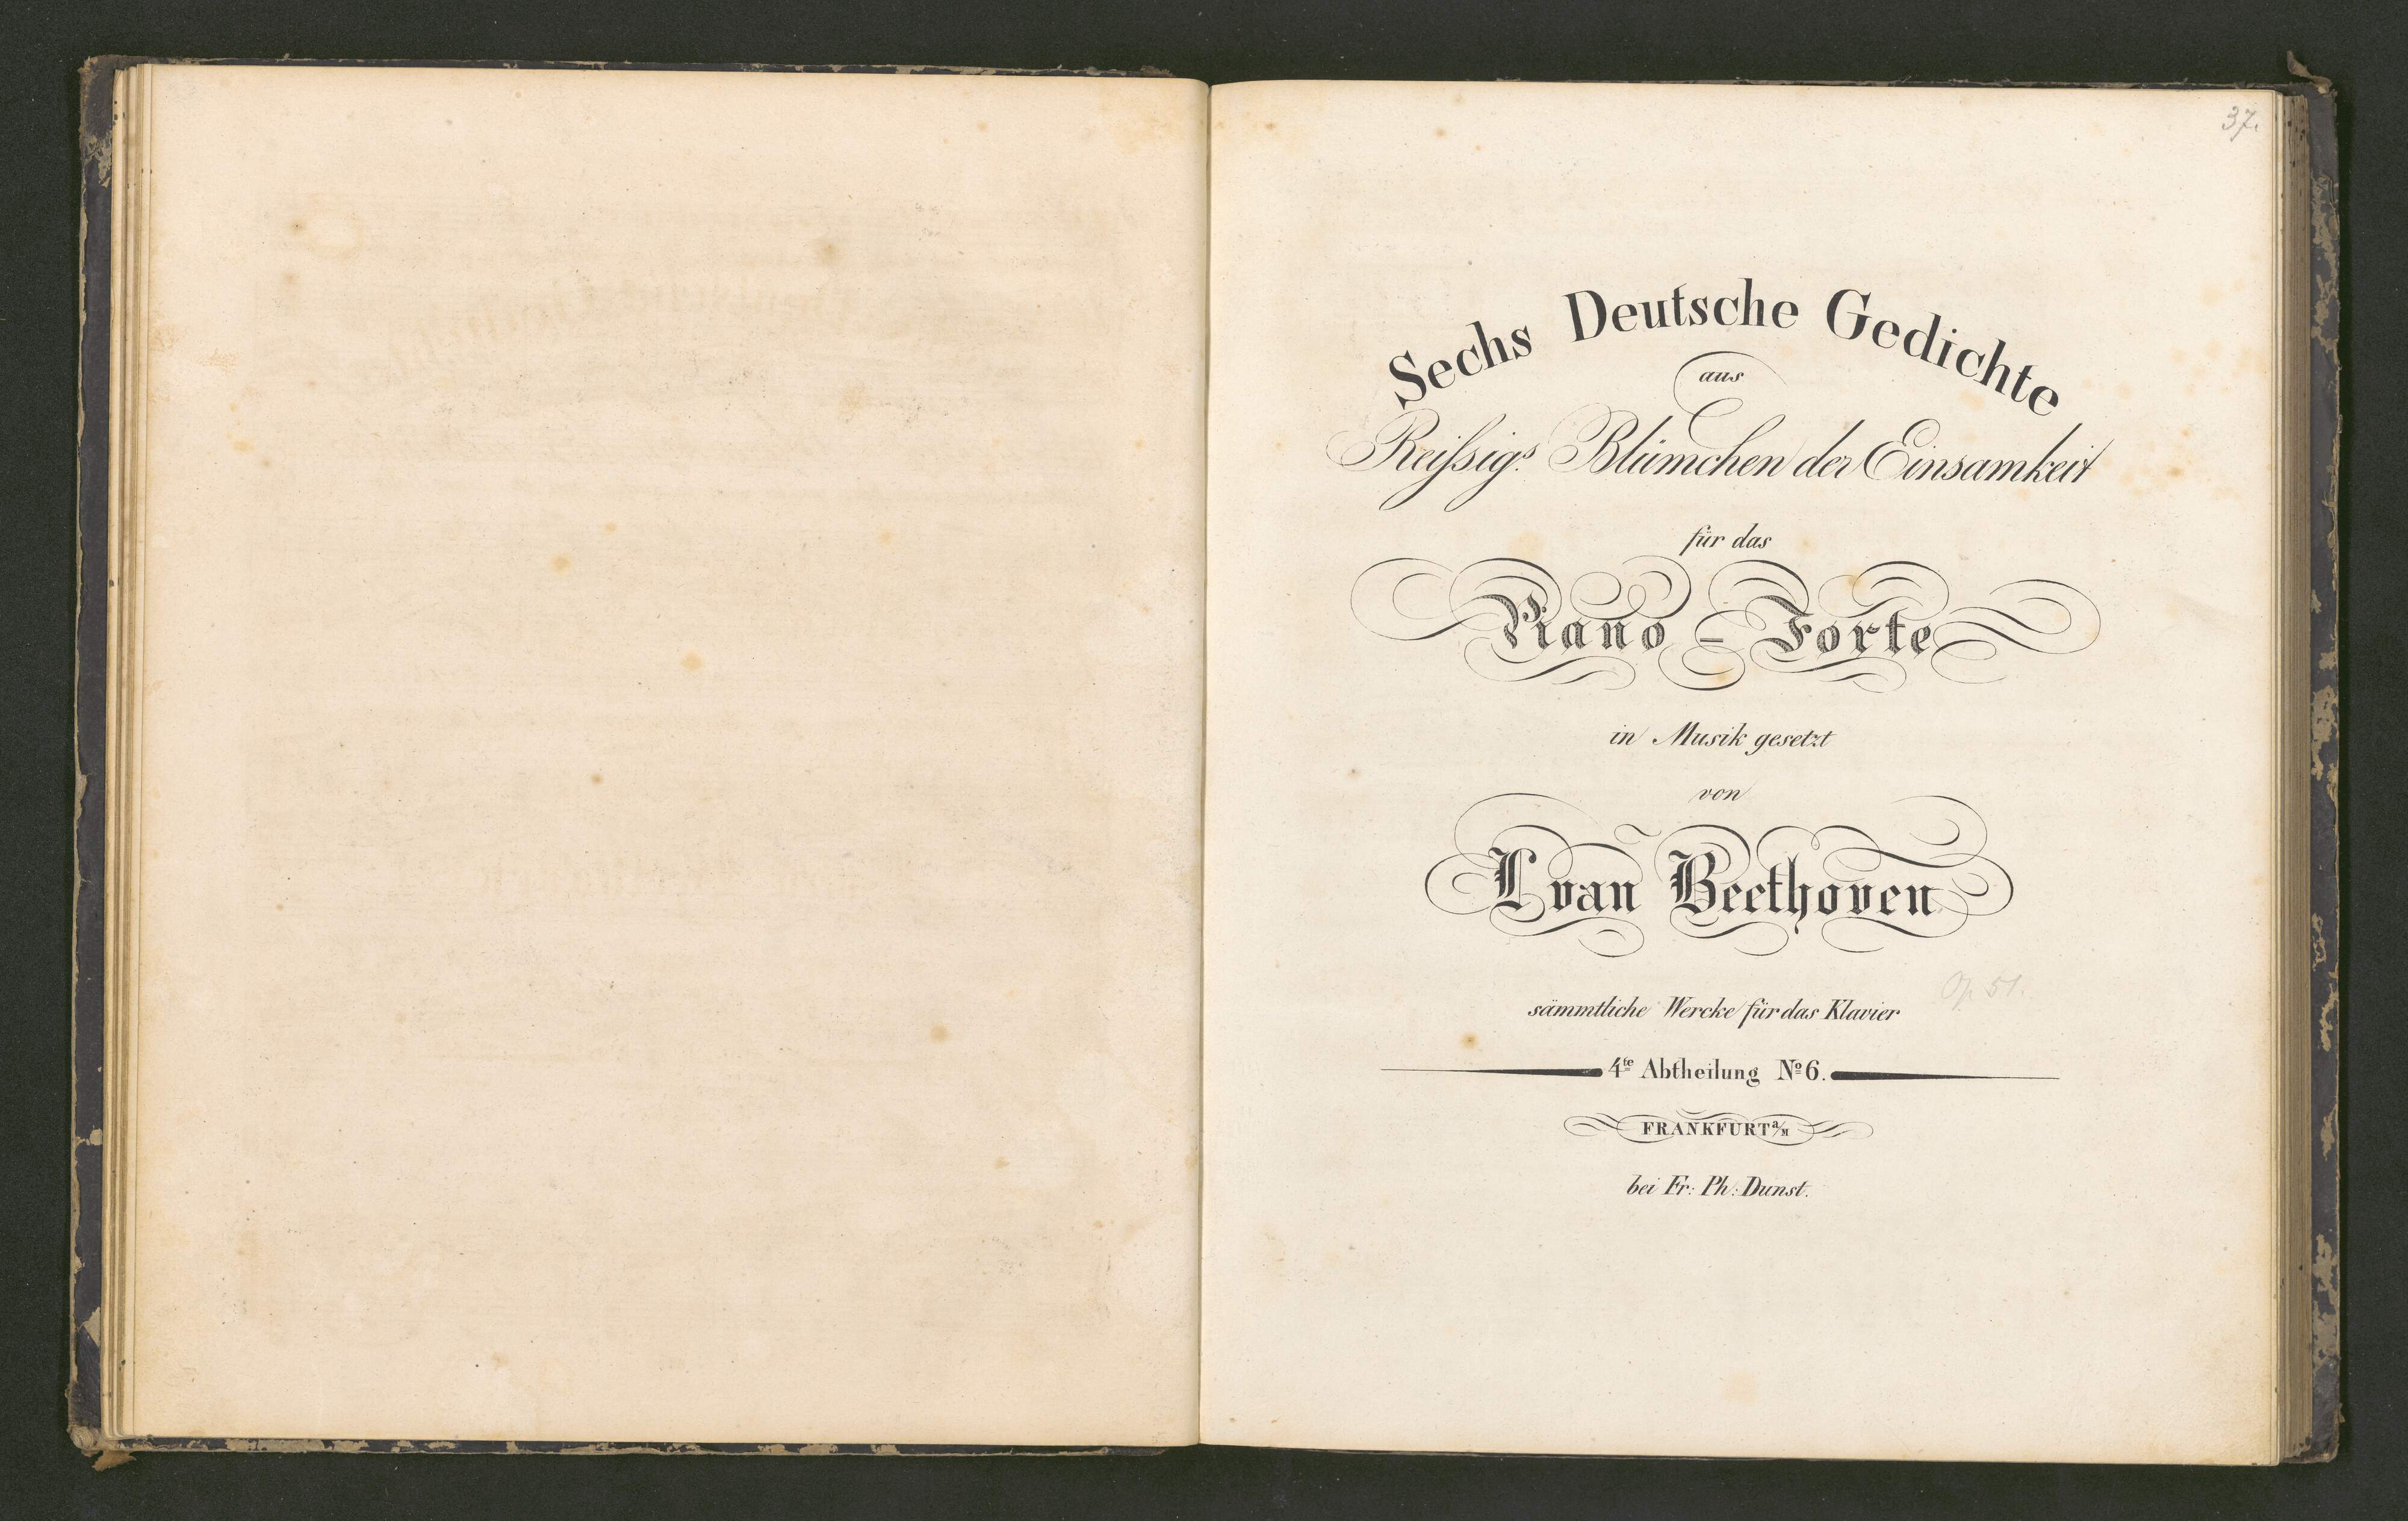 37.
Sechs Deutsche Gedichte
aus
Reiſsigs Blümchen der Einsamkeit
für das
Piano-Forte
in Musik gesetzt
von
L van Beethoven
Op. 51.
sämmtliche Wercke für das Klavier
4te Abtheilung No 6.
FRANKFURT a/M
bei Fr: Ph: Dunst.